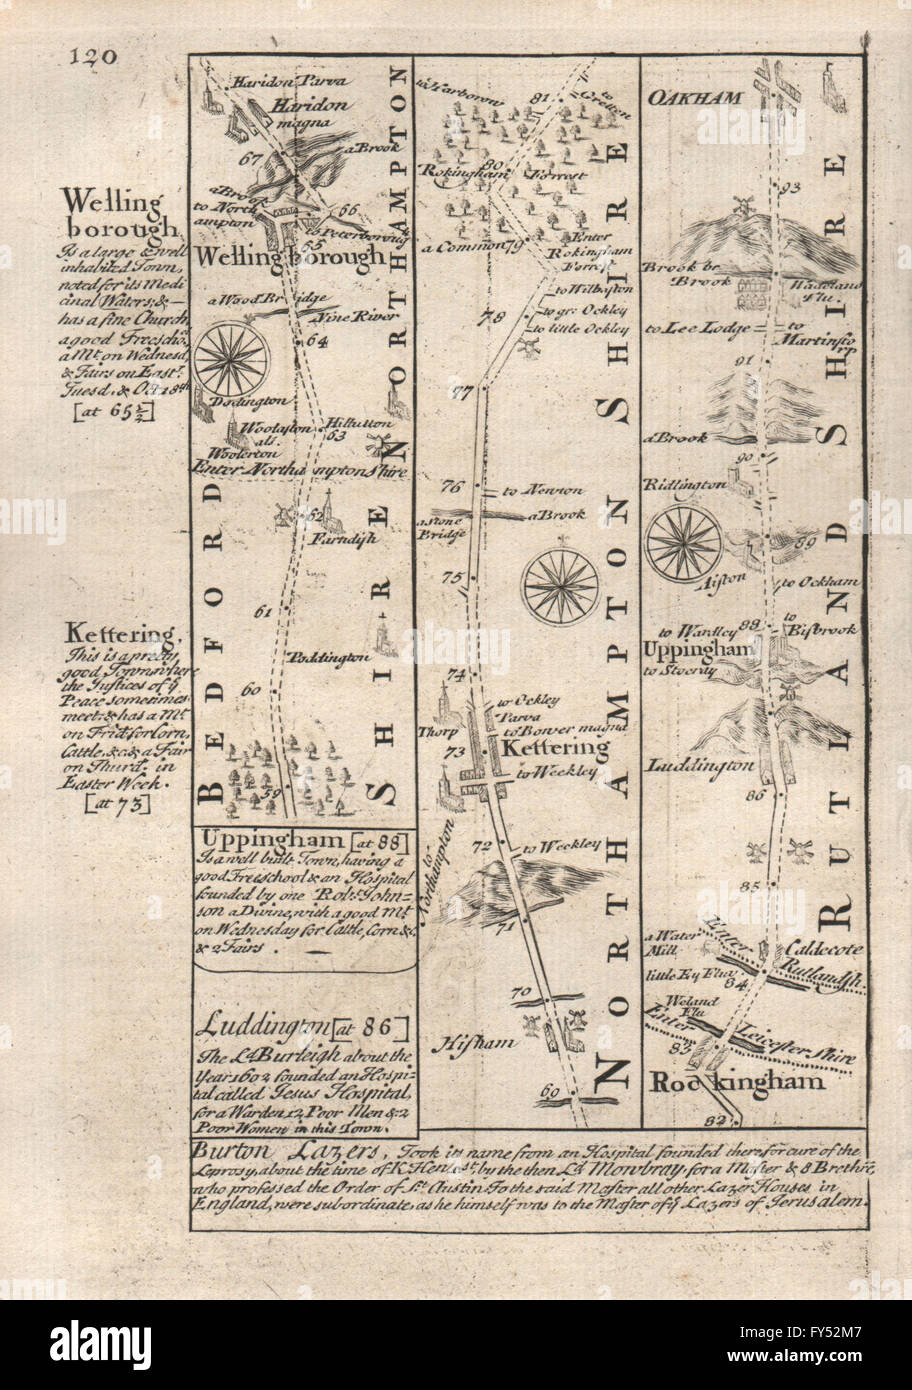 120
Welling
borough
Is a large & well
inhabited Town,
noted for its Medi
cinal Waters; & —
has a fine Church,
a good Freescho.l
a M.t on Wednesd.
& Fairs on East.r
Tuesd. & Oct. 18th
[at 65½]
Kettering,
This is a pretty
good Town where
the Justices of ye
Peace sometimes
meet: & has a M.t
on Frid. for Corn,
Cattle, &c. & a Fair
on Thurd. in
Easter Week.
[at 73]
Haridon Parva
Haridon
magna
67
a Brook
a Brook
to North
ampton
66
to Peterborough
65
Wellingborough
a Wood Bridge
Nine River
64
Dodington
Woolaston
als.
Woolerton
Hiltutton
63
Enter Northamptonshire
62
Farndish
61
Poddington
60
59
BEDFORD
SHIRE
NORTHAMPTON
Uppingham [at 88]
Is a well built Town, having a
good Freeschool & an Hospital
founded by one Rob.t John-
son a Divine, with a good M.t
on Wednesday for Cattle, Corn &c.
& 2 Fairs.
Luddington [at 86]
The L.d Burleigh about the
Year 1602 founded an Hospi-
tal called Jesus Hospital,
for a Warden 12 Poor Men & 2
Poor Women in this Town.
to Harborow
81
to Gretten
80
Rokingham Forrest
a Common 79
Enter
Rokingham
Forrest
to Wilbaston
to gr: Ockley
78
to little Ockley
77
76
to Newton
a stone
Bridge
a Brook
75
74
to Ockley
Parva
Thorp
to Bover magna
73
Kettering
to Weekley
to
Northampton
72
to Weckley
71
70
Hisham
69
NORTHAMPTON SHIRE
OAKHAM
93
Brook br
Brook
Wadeland
Flu.
to Lee Lodge
to
Martinstorp
91
a Brook
90
Ridlington
89
Aiston
to Ockham
88
to Wardley
to
Bisbrook
Uppingham
to Stoenty
Luddington
86
85
a Water
Mill
Enter
Caldecote
Rutlandsh.
little Ey Flu.
84
Weland
Flu
Enter
Leicestershire
83
Rockingham
82
RUTLAND SHIRE
Burton Lazers, Took its name from an Hospital founded there for cure of the
Leprosy, about the time of K. Hen. 1st by the then L.d Mowbray for a Master & 8 Brethrē,
who professed the Order of S.t Austin. To the said Master all other Lazer Houses in
England, were subordinate, as he himself was to the Master of ye Lazers of Jerusalem.
alamy
Image ID: FY52M7
www.alamy.com